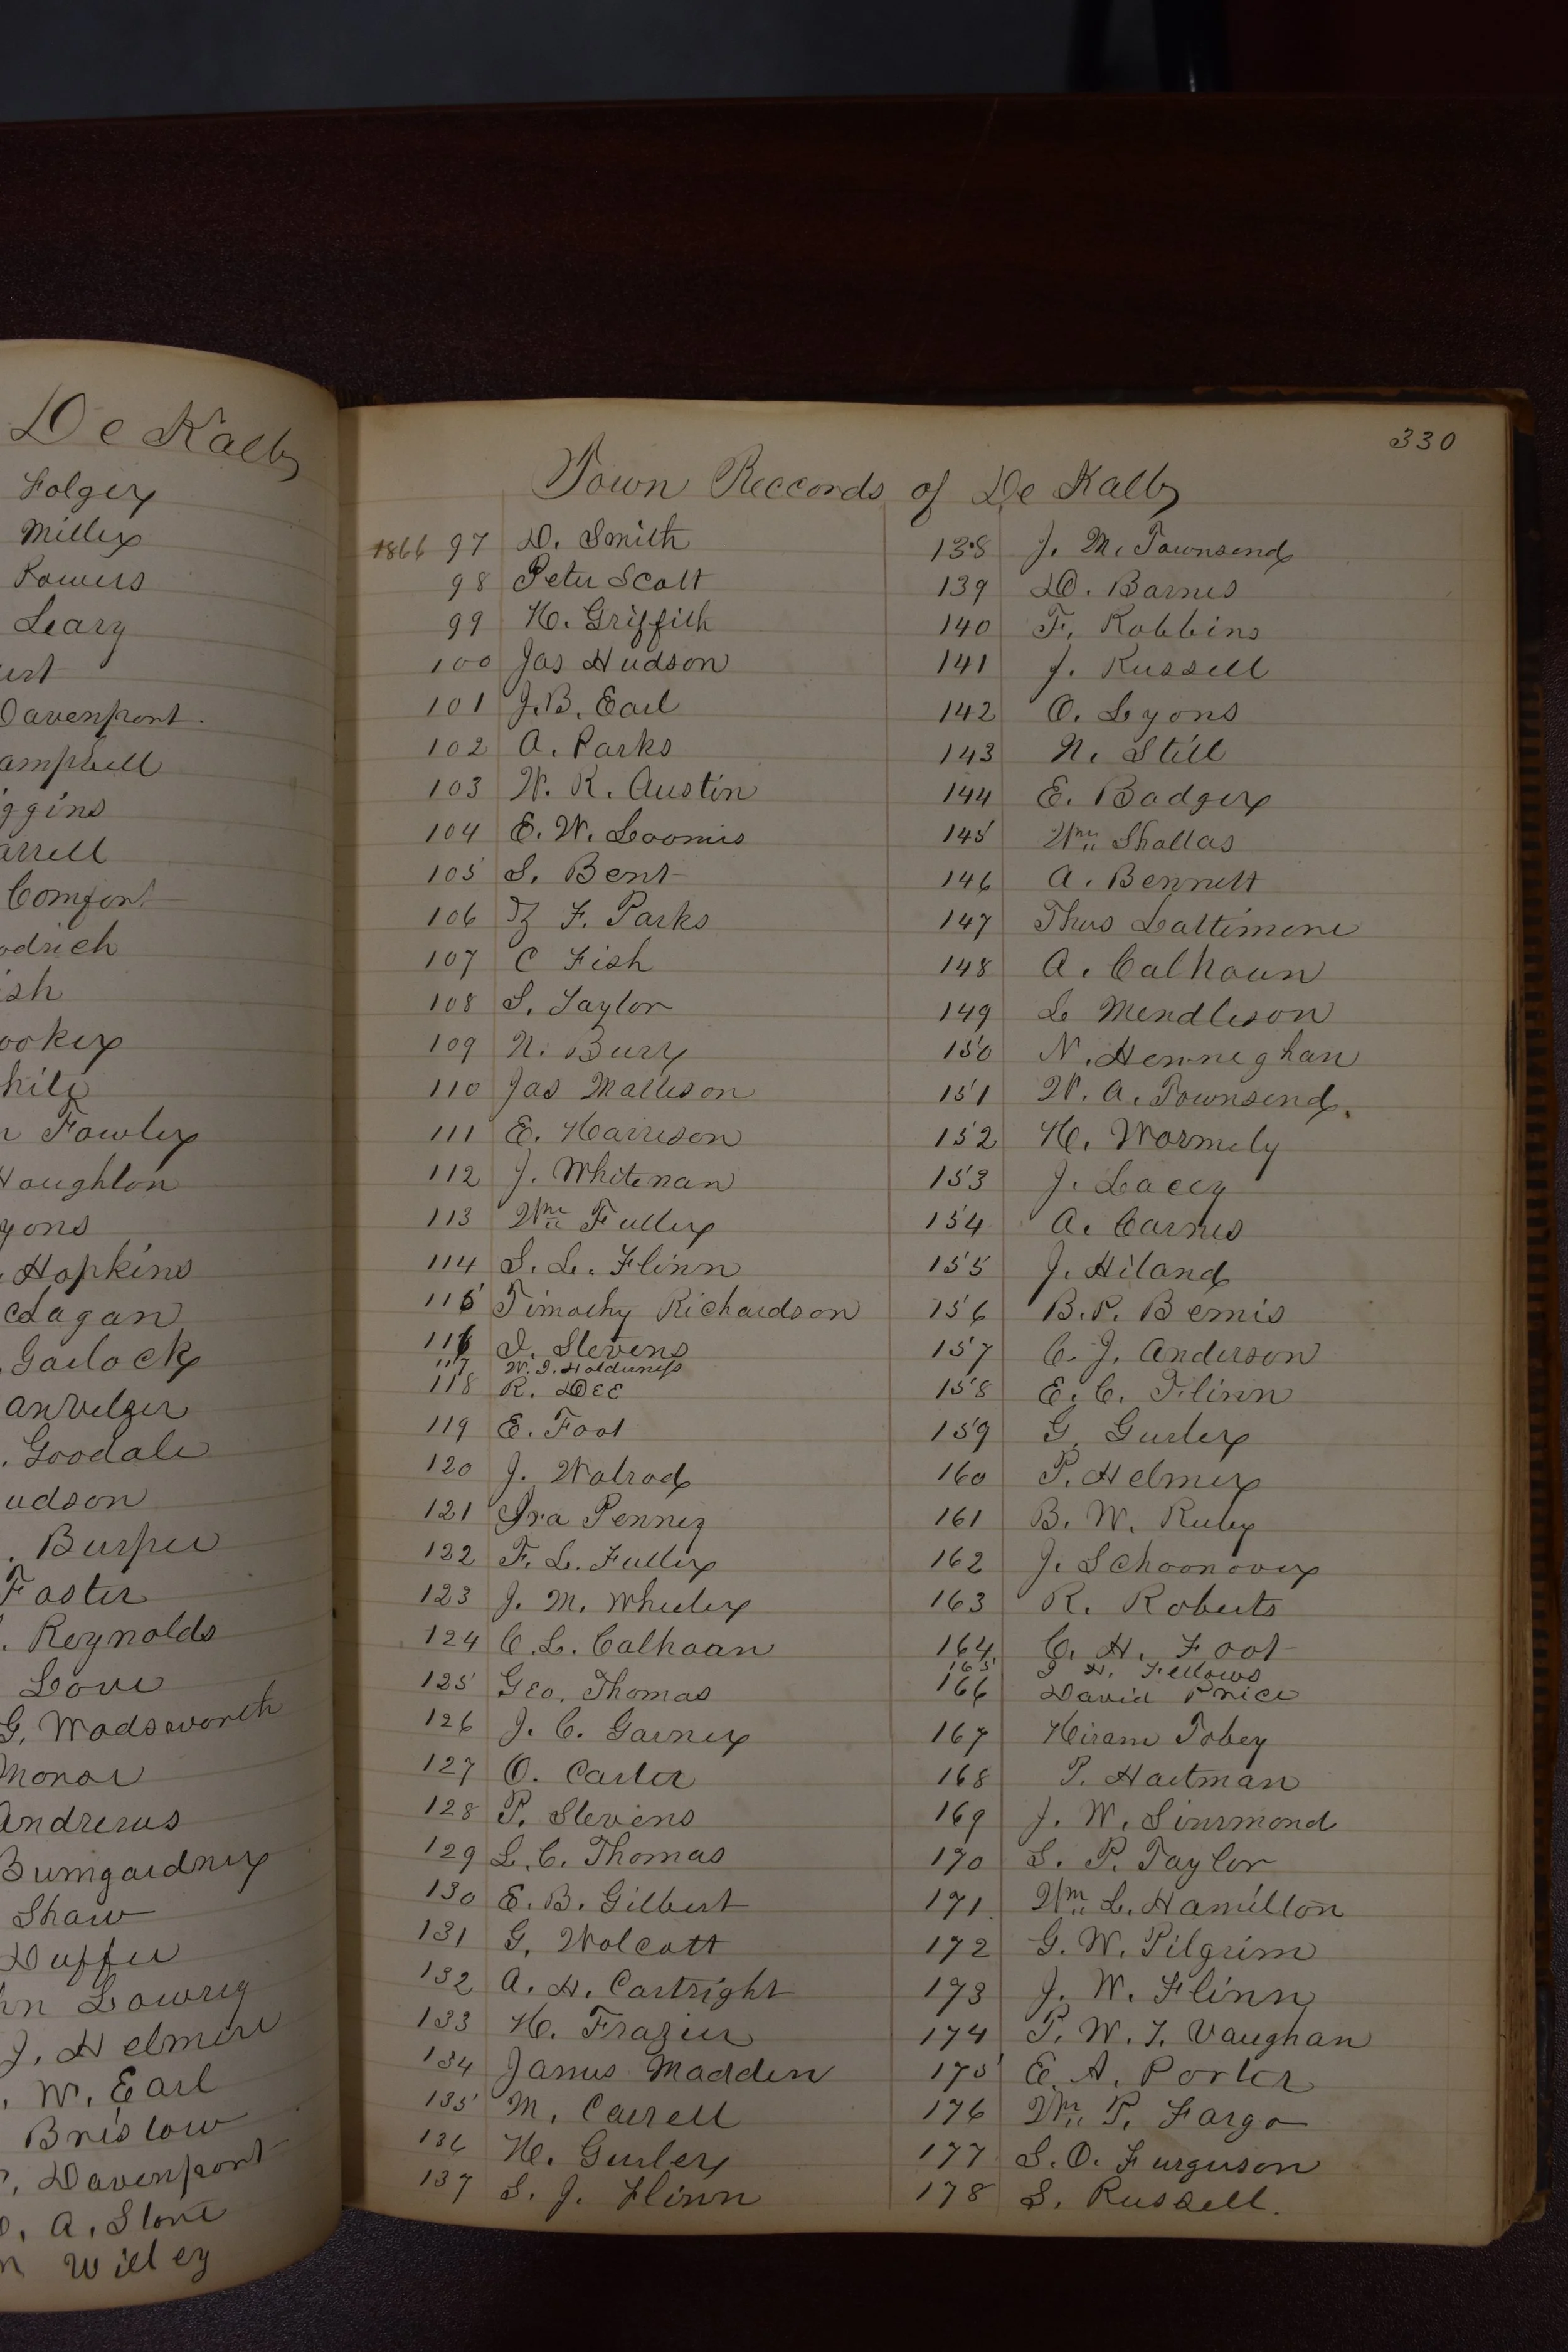 De Kalb
Folger
Miller
Powers
Leary
Davenport.
Campbell
iggins
arrell
Comfort
odrich
ish
ooker
hite
n Fowler
Houghton
yons
Hopkins
cLagan
Garlock
anVelzer
. Goodale
udson
. Burpee
Foster
. Reynolds
Love
G. Wadsworth
Andrews
Bumgardner
Shaw
Duffee
hn Lowrey
J. Helmer
. W. Earl
Bristow
, Davenport
. A. Stone
n Willey
330
Town Reccords of De Kalb
1866 97 D. Smith
98 Peter Scott
99 H. Griffith
100 Jas Hudson
101 J. B. Earl
102 A. Parks
103 W. R. Austin
104 E. W. Loomis
105 S. Bent
106 Z F. Parks
107 C Fish
108 S. Taylor
109 N. Burr
110 Jas Matteson
111 E. Harrison
112 J. Whiteman
113 Wm Fuller
114 S. L. Flinn
115 Timothy Richardson
116 I. Stevens
117 W. I. Holderness
118 R. DEE
119 E. Foot
120 J. Walrod
121 Ira Penney
122 F. L. Fuller
123 J. M. Wheeler
124 C. L. Calhoan
125 Geo. Thomas
126 J. C. Garner
127 O. Carter
128 P. Stevens
129 L. C. Thomas
130 E. B. Gilbert
131 G. Wolcott
132 A. H. Cartright
133 H. Frazier
134 James Madden
135 M. Carrell
136 H. Gurler
137 S. J. Flinn
138 J. M. Townsend
139 D. Barnes
140 F. Robbins
141 J. Russell
142 O. Lyons
143 N. Still
144 E. Badger
145 Wm Shallas
146 A. Bennett
147 Thos Lattimore
148 A. Calhoun
149 L Mendleson
150 N. Henneghan
151 W. A. Townsend.
152 H. Wormely
153 J. Lacey
154 A. Carnes
155 J. Hiland
156 B. P. Bemis
157 C. J. Anderson
158 E. C. Flinn
159 G. Gurler
160 P. Helmer
161 B. W. Ruby
162 J. Schoonover
163 R. Roberts
164 C. H. Foot
165 I H. Fellows
166 David Price
167 Hiram Tobey
168 P. Hartman
169 J. W. Simmond
170 S. P. Taylor
171 Wm L. Hamilton
172 G. W. Pilgrim
173 J. W. Flinn
174 P. W. T. Vaughan
175 E. A. Porter
176 Wm P. Fargo
177 S. O. Furguson
178 S. Russell.